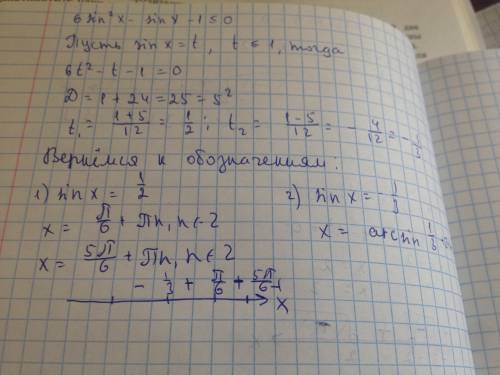 6 sin²x - sin x - 1 ≤ 0
Пусть sin x = t, t ≤ 1, тогда
6t² - t - 1 = 0
D = 1 + 24 = 25 = 5²
t₁ = (1+5)/12 = 1/2 ; t₂ = (1-5)/12 = - 4/12 = - 1/3
Вернёмся к обозначениям:
1) sin x = 1/2   2) sin x = - 1/3
x = π/6 + πn, n ∈ Z   x = arcsin 1/3
x = 5π/6 + πn, n ∈ Z
- 1/3 + π/6 + 5π/6
x